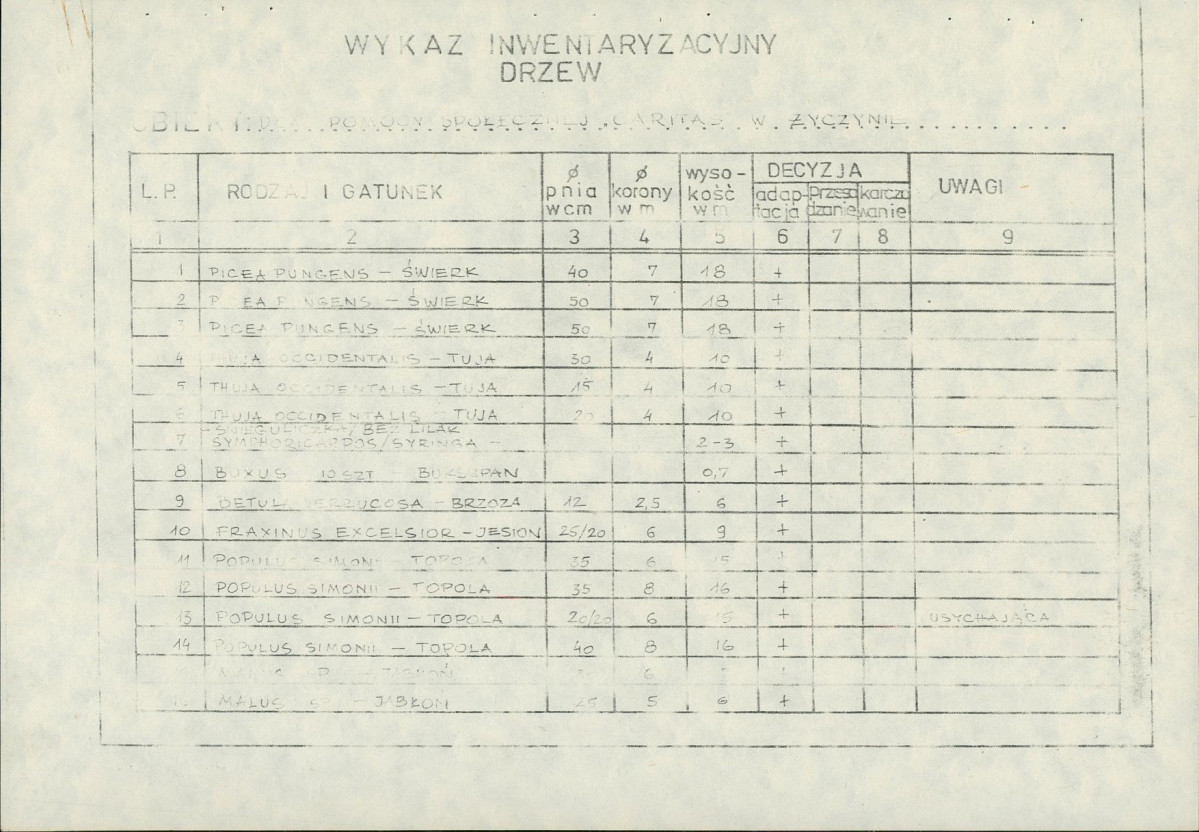 WYKAZ INWENTARYZACYJNY
DRZEW
OBIEKT: D... POMOCY SPOŁECZNEJ "CARITAS" W ŻYCZYNIE
L.P. RODZAJ I GATUNEK ø pnia w cm ø korony w m wyso-kość w m DECYZJA adap-tacja przesa dzanie karczo wanie UWAGI
1 2 3 4 5 6 7 8 9
1 PICEA PUNGENS – ŚWIERK 40 7 18 +
2 PICEA PUNGENS – ŚWIERK 50 7 18 +
3 PICEA PUNGENS – ŚWIERK 50 7 18 +
4 THUJA OCCIDENTALIS – TUJA 30 4 10 +
5 THUJA OCCIDENTALIS – TUJA 15 4 10 +
6 THUJA OCCIDENTALIS – TUJA 20 4 10 +
– ŚNIEGULICZKA / BEZ LILAK
7 SYMPHORICARPOS / SYRINGA – 2–3 +
8 BUXUS 10 SZT – BUKSZPAN 0,7 +
9 BETULA VERRUCOSA – BRZOZA 12 2,5 6 +
10 FRAXINUS EXCELSIOR – JESION 25/20 6 9 +
11 POPULUS SIMONII – TOPOLA 35 6 15 +
12 POPULUS SIMONII – TOPOLA 35 8 16 +
13 POPULUS SIMONII – TOPOLA 20/20 6 15 + USYCHAJĄCA
14 POPULUS SIMONII – TOPOLA 40 8 16 +
MALUS SP. – JABŁOŃ 6
16 MALUS SP. – JABŁOŃ 25 5 6 +